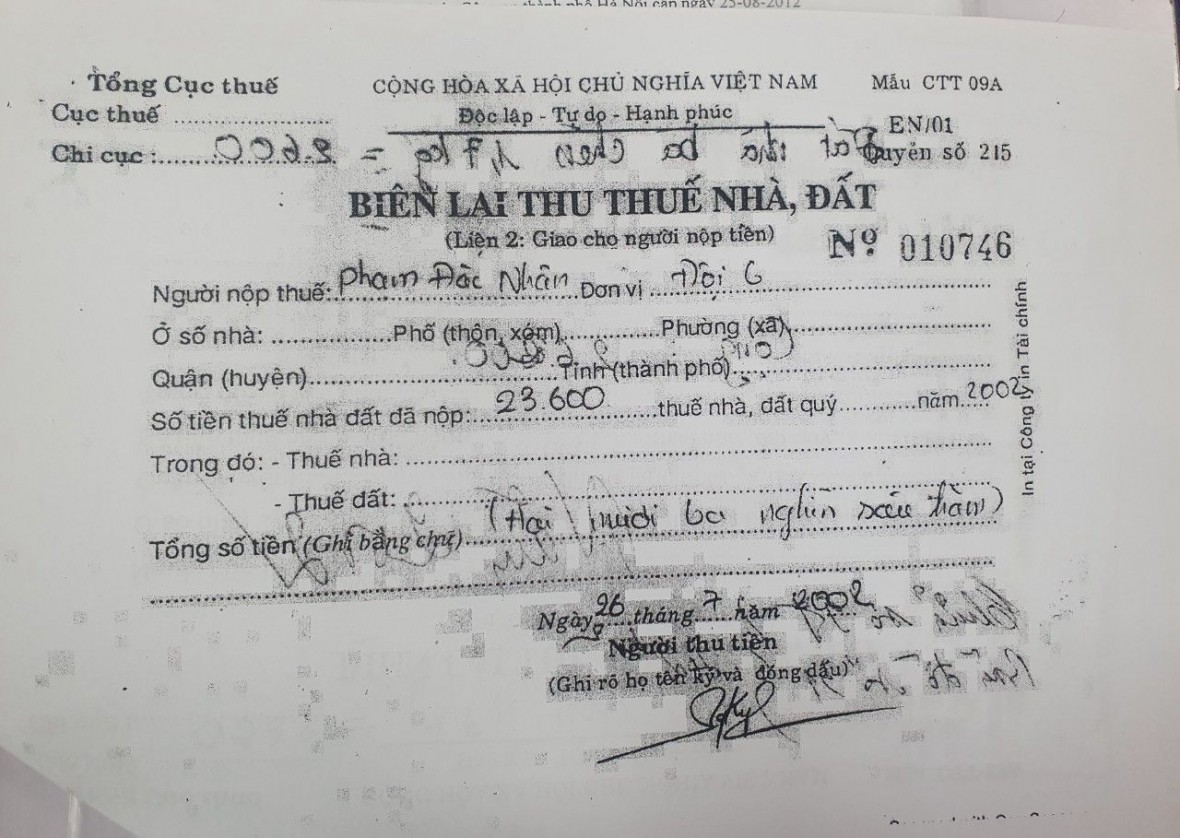 Hà Nội cấp ngày 25-08-2012
Tổng Cục thuế
CỘNG HÒA XÃ HỘI CHỦ NGHĨA VIỆT NAM
Mẫu CTT 09A
Cục thuế ..........................
Độc lập - Tự do - Hạnh phúc
EN/01
Chi cục :..........................
Quyển số 215
BIÊN LAI THU THUẾ NHÀ, ĐẤT
(Liên 2: Giao cho người nộp tiền)
Nº 010746
Người nộp thuế: Phạm Đắc Nhân Đơn vị Đội 6
Ở số nhà: ..................Phố (thôn, xóm)..............Phường (xã)..............................
Quận (huyện)......................................Tỉnh (thành phố)......................................
Số tiền thuế nhà đất đã nộp: 23.600 thuế nhà, đất quý............năm 2002
Trong đó: - Thuế nhà: ..........................................................................
- Thuế đất: ..........................................................................
Tổng số tiền (Ghi bằng chữ) (Hai mươi ba nghìn sáu trăm)
Ngày 26 tháng 7 năm 2002
Người thu tiền
(Ghi rõ họ tên ký và đóng dấu)
In tại Công ty in Tài chính